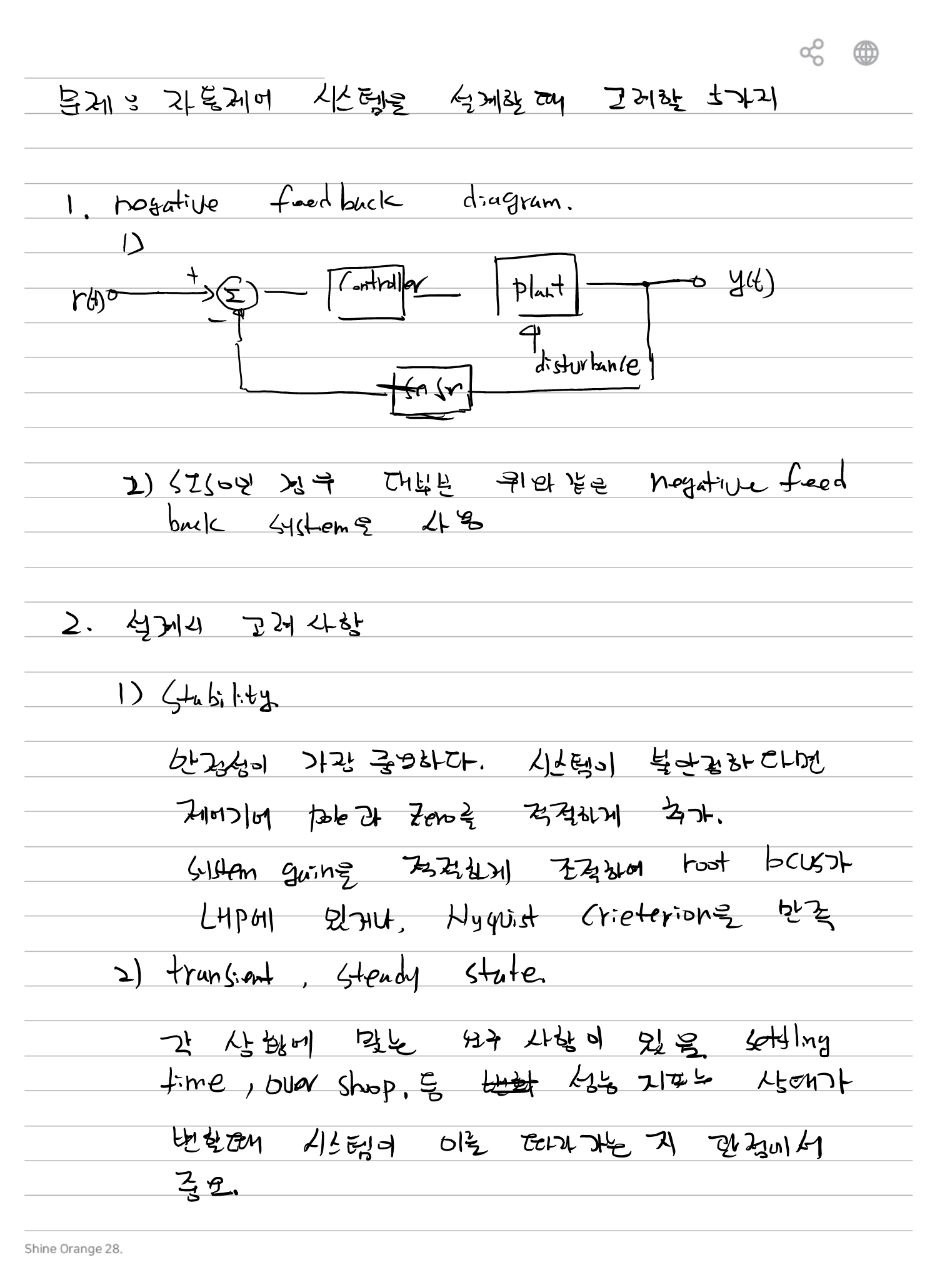 문제 : 자동제어 시스템을 설계할 때 고려할 5가지
1. negative feedback diagram.
1)
r(t) + Σ Controller plant y(t)
−
disturbance
2) SISO인 경우 대부분 위와 같은 negative feed
back system을 사용
2. 설계시 고려 사항
1) Stability
안정성이 가장 중요하다. 시스템이 불안정하다면
제어기에 pole과 zero를 적절하게 추가.
system gain을 적절하게 조절하여 root locus가
LHP에 있거나, Nyquist Crieterion을 만족
2) transient, steady state.
각 상황에 맞는 요구 사항이 있음. settling
time, over shop. 등 성능 지표는 상태가
변할때 시스템이 이를 따라가는 지 관점에서
중요.
Shine Orange 28.